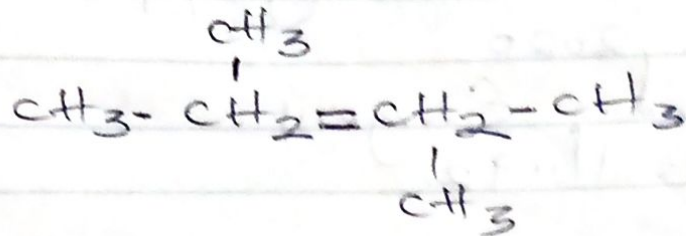 CH3
CH3-CH2=CH2-CH3
CH3